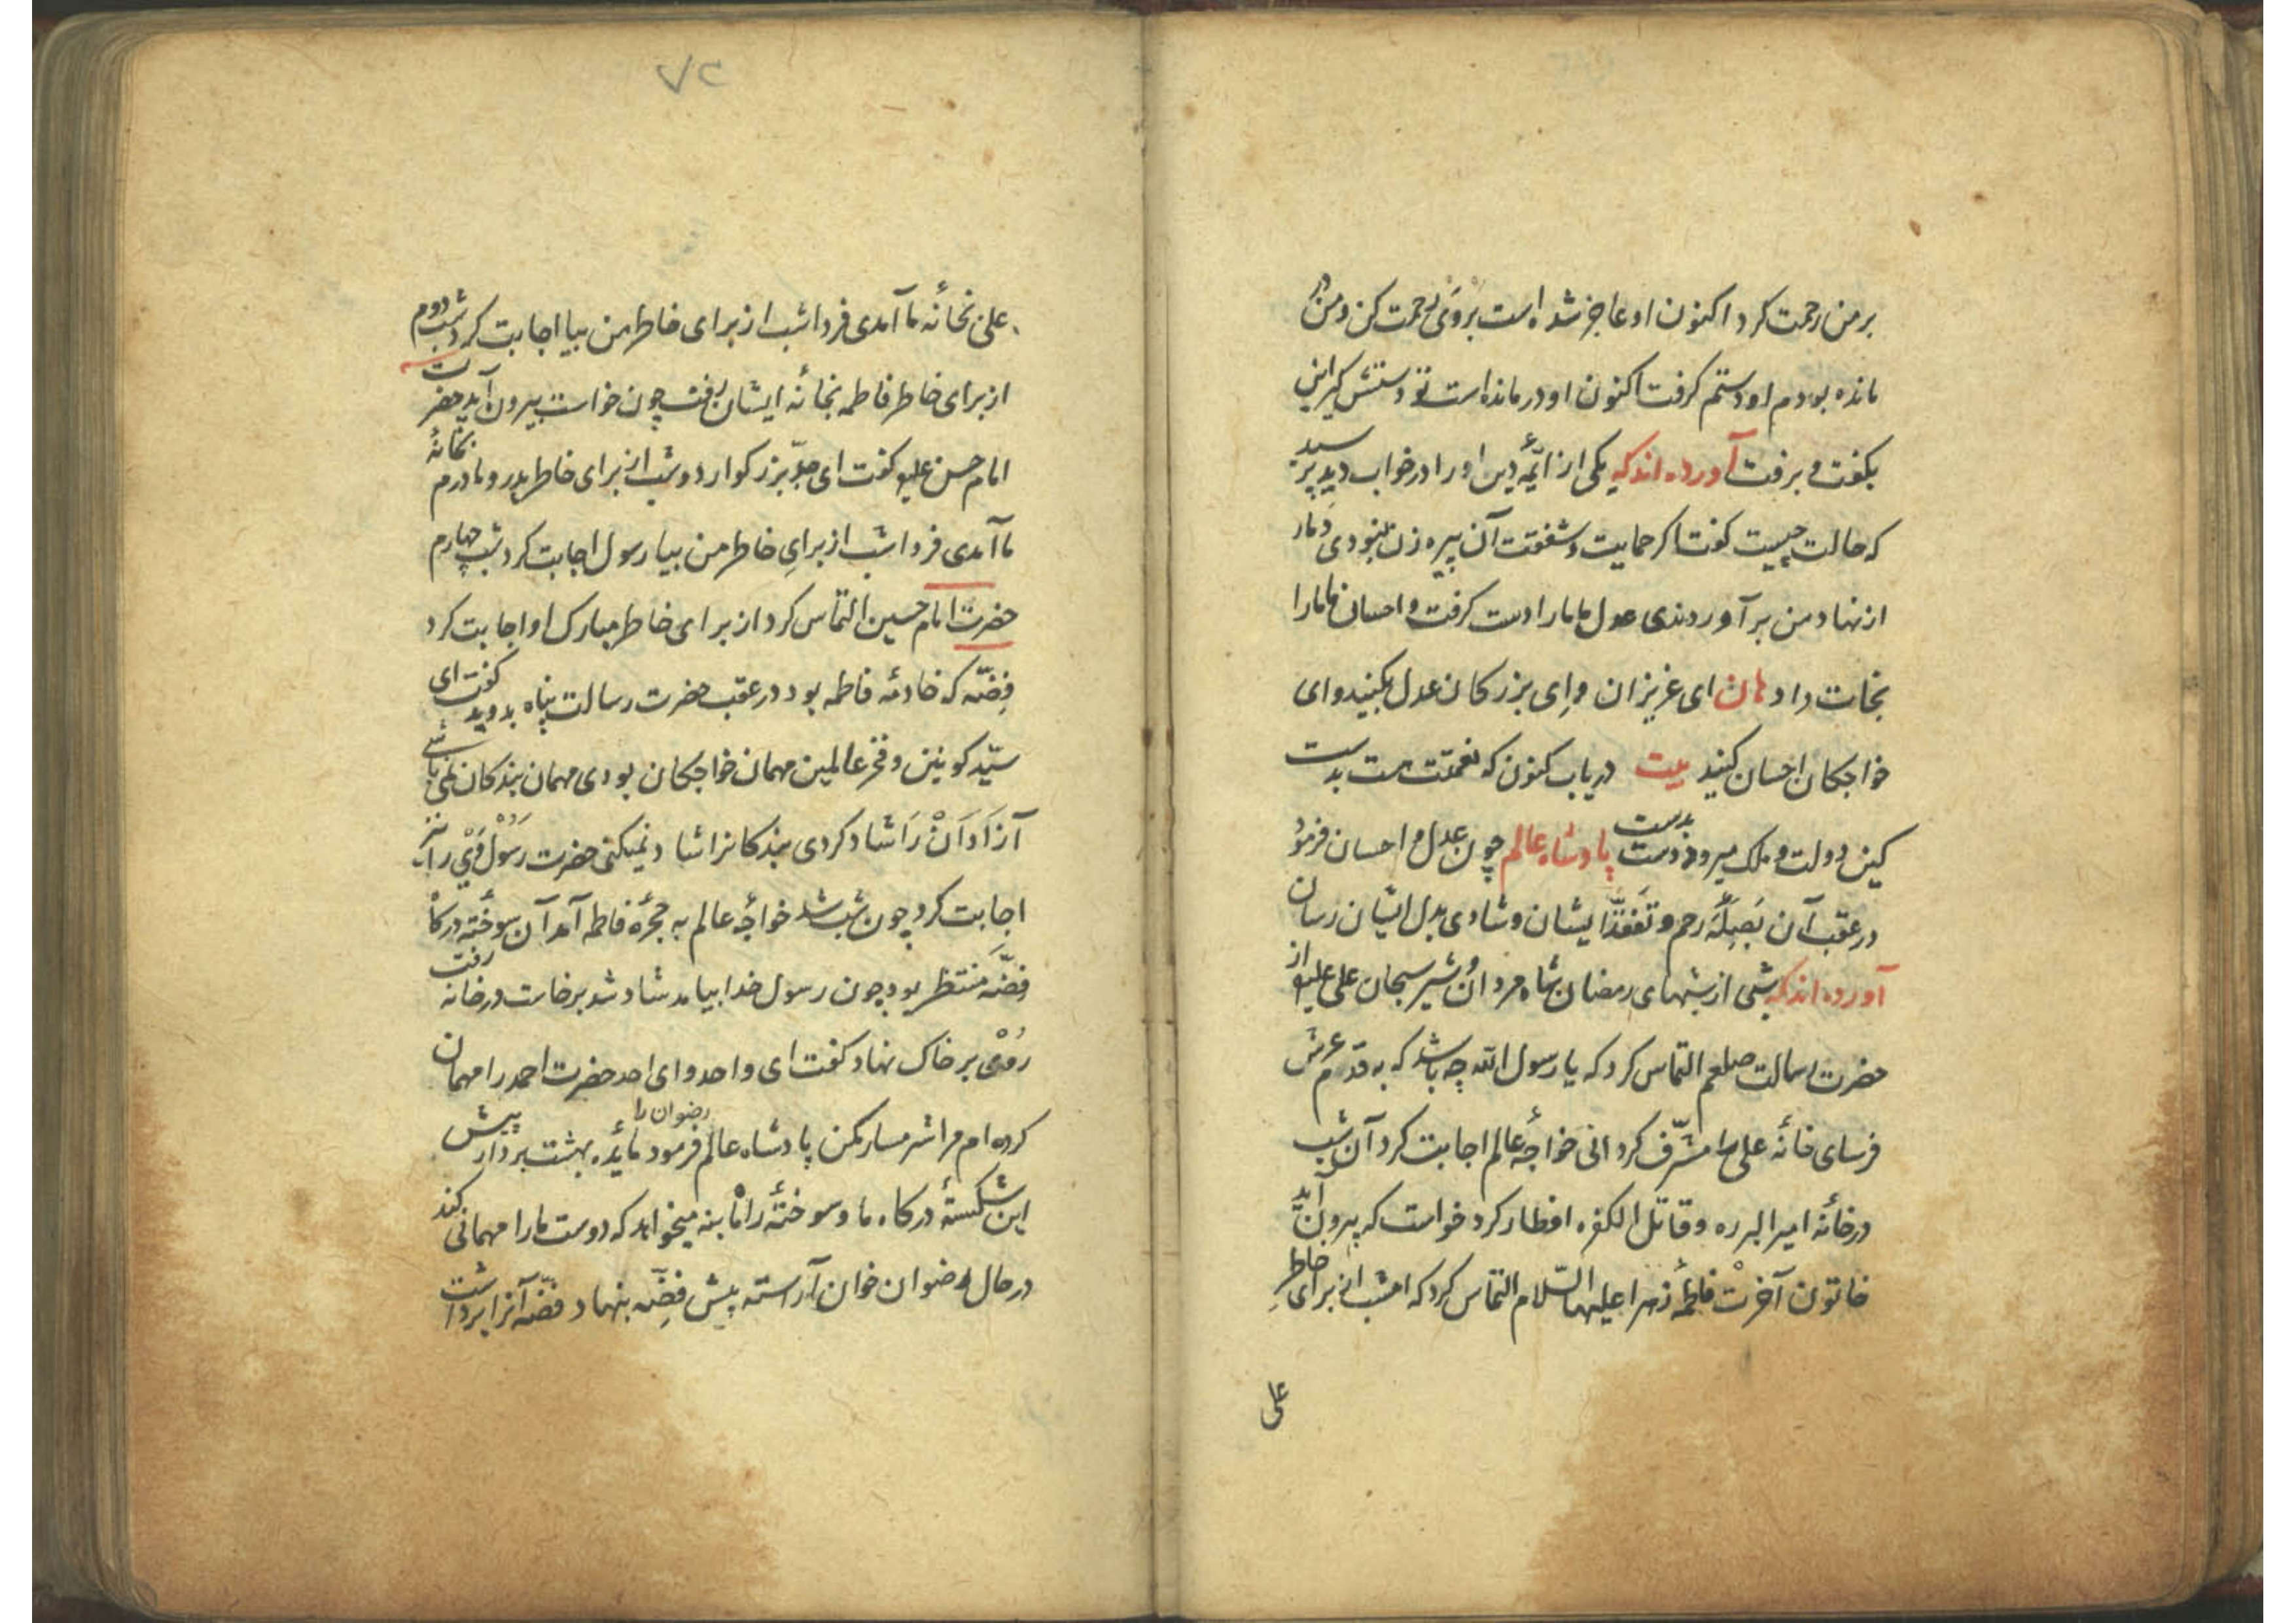 بر من رحمت کرد اکنون او عاجز شده است بروی رحمت کن و من در
مانده بودم او دستم کرفت اکنون او در مانده است تو دستش کیر این
بکفت و برفت آورده اند که یکی از ائمه دین او را در خواب دید پرسید
که حالت چیست کفت اکر حمایت و شفقت آن پیره زن نبودی دمار
از نهاد من برآوردندی عدل ما ما را دست کرفت و احسان ما ما را
نجات داد هان ای عزیزان و ای بزرکان عدل بکنید و ای
خواجکان احسان کنید بیت دریاب کنون که نعمتت هست بدست
کین دولت و ملک میرود دست بدست پادشاه عالم چون عدل و احسان فرمود
در عقب آن بصله رحم و تفقد ایشان و شادی بدل ایشان رسان
آورده اند که شبی از شبهای رمضان شاه مردان و شیر سبحان علی علیه از
حضرت رسالت صلعم التماس کرد که یا رسول الله چه باشد که به قدم عرش
فرسای خانه علی را مشرف کردانی خواجه عالم اجابت کرد آن شب
در خانه امیر البرره و قاتل الکفره افطار کرد خواست که بیرون آید
خاتون آخرت فاطمه زهرا علیها السلام التماس کرد که امشب از برای خاطر
علی
۷۲
علی بخانه ما آمدی فردا شب از برای خاطر من بیا اجابت کرد شب دوم
از برای خاطر فاطمه بخانه ایشان رفت چون خواست بیرون آید حضرت
امام حسن علیه کفت ای جد بزرکوار دو شب از برای خاطر پدر و مادرم بخانه
ما آمدی فردا شب از برای خاطر من بیا رسول اجابت کرد شب چهارم
حضرت امام حسین التماس کرد از برای خاطر مبارک او اجابت کرد
فضه که خادمه فاطمه بود در عقب حضرت رسالت پناه بدوید کفت ای
سید کونین و فخر عالمین مهمان خواجکان بودی مهمان بندکان نمی باشی
آزادان را شاد کردی بندکانرا شاد نمیکنی حضرت رسول وی را نیز
اجابت کرد چون شب شد خواجه عالم به حجره فاطمه آمد آن سوخته درکاه
فضه منتظر بود چون رسول خدا بیامد شاد شد برخاست در خانه رفت
روی بر خاک نهاد کفت ای واحد و ای احد حضرت احمد را مهمان
کرده ام مرا شرمسار مکن پادشاه عالم فرمود رضوان را مائده بهشت بردار پیش
این شکسته درکاه ما و سوخته راه ما بنه میخواهد که دوست ما را مهمانی کند
در حال رضوان خوان آراسته پیش فضه بنهاد فضه آنرا برداشت